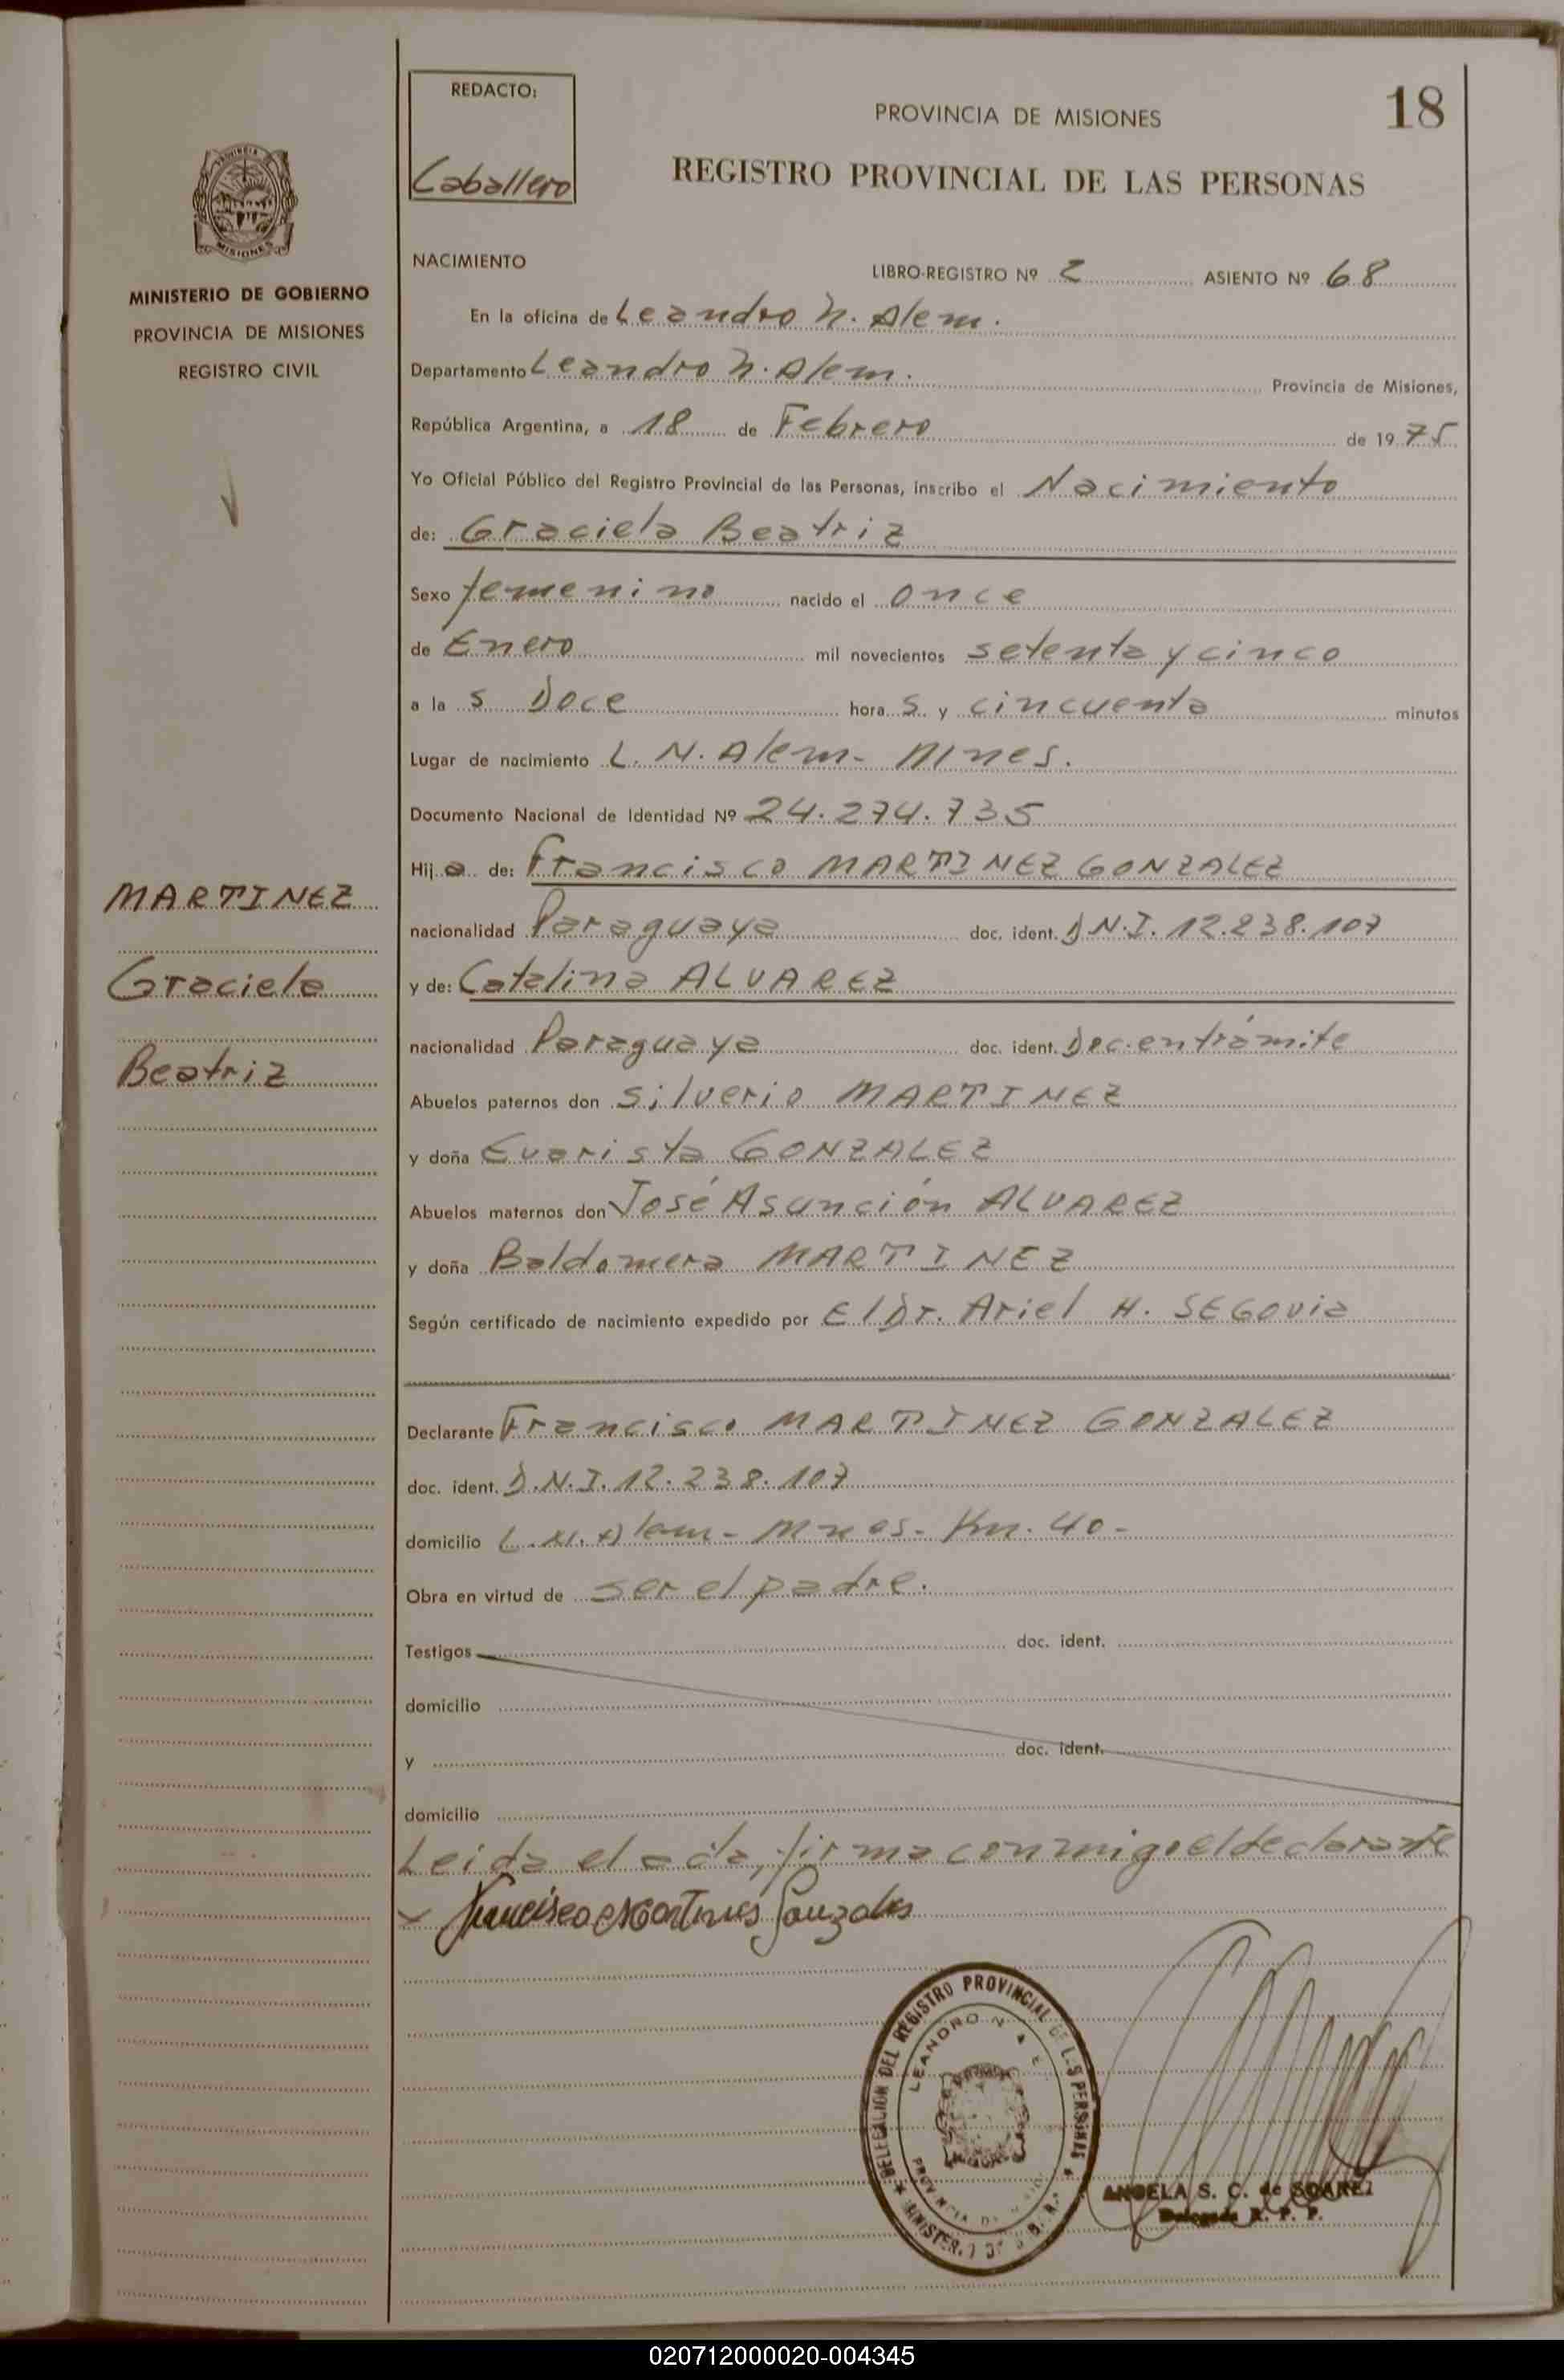 REDACTO:
Caballero
18
PROVINCIA DE MISIONES
REGISTRO PROVINCIAL DE LAS PERSONAS
MISIONES
MINISTERIO DE GOBIERNO
PROVINCIA DE MISIONES
REGISTRO CIVIL
NACIMIENTO
LIBRO-REGISTRO Nº 2 ASIENTO Nº 68
En la oficina de Leandro N. Alem.
Departamento Leandro N. Alem. Provincia de Misiones,
República Argentina, a 18 de Febrero de 1975
Yo Oficial Público del Registro Provincial de las Personas, inscribo el Nacimiento
de: Graciela Beatriz
Sexo femenino nacido el once
de Enero mil novecientos setenta y cinco
a las Doce horas y cincuenta minutos
Lugar de nacimiento L. N. Alem- Mnes.
Documento Nacional de Identidad Nº 24.274.735
Hija de: Francisco MARTINEZ GONZALEZ
MARTINEZ
nacionalidad Paraguaya doc. ident. D.N.I. 12.238.107
Graciela
y de: Catalina ALVAREZ
nacionalidad Paraguaya doc. ident. Doc. en trámite
Beatriz
Abuelos paternos don Silverio MARTINEZ
y doña Evarista GONZALEZ
Abuelos maternos don José Asunción ALVAREZ
y doña Baldomera MARTINEZ
Según certificado de nacimiento expedido por El Dr. Ariel H. SEGOVia
Declarante Francisco MARTINEZ GONZALEZ
doc. ident. D.N.I. 12.238.107
domicilio L. N. Alem- Mnes- Km. 40-
Obra en virtud de ser el padre.
Testigos doc. ident.
domicilio
y doc. ident.
domicilio
Leida el acta, firma conmigo el declarante
x Francisco Martines Gonzales
DELEGACION DEL REGISTRO PROVINCIAL DE LAS PERSONAS
LEANDRO N
PROVINCIA
ANGELA S. C. de SOAREZ
Delegada R. P. P.
020712000020-004345